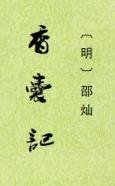 香囊記
〔明〕邵灿